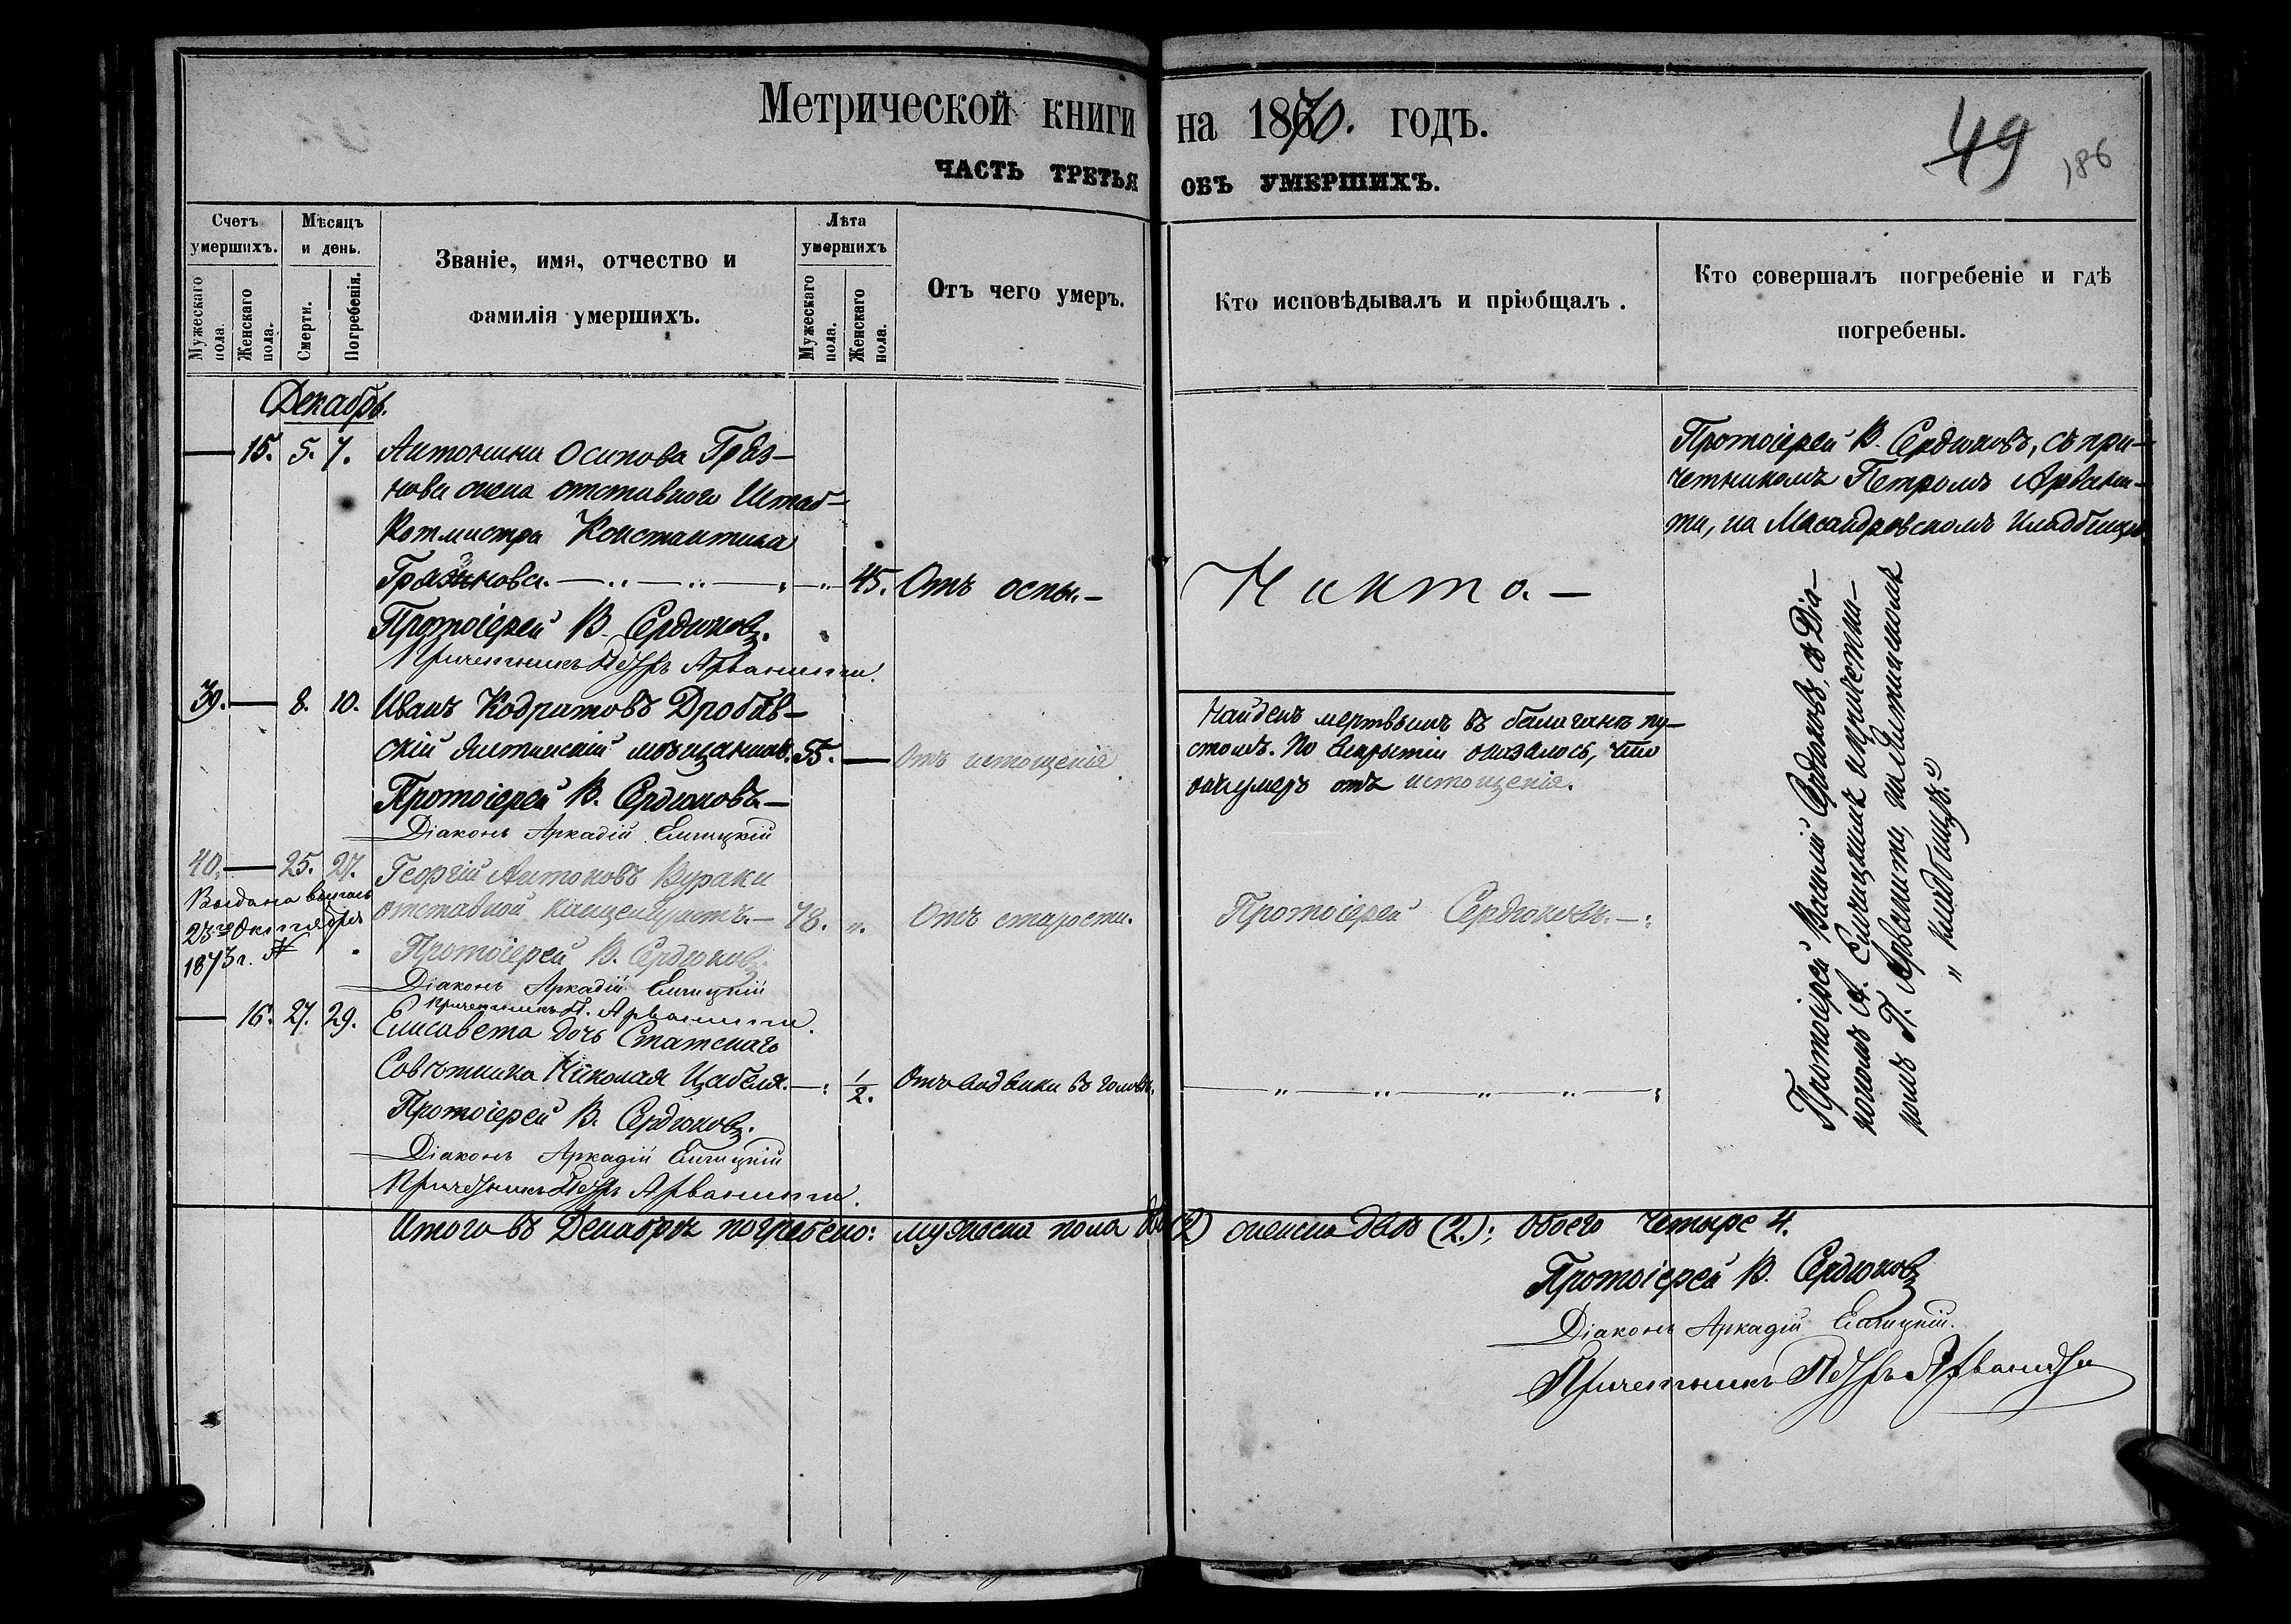 Метрической книги на 1870. годъ.
49
186
ЧАСТЬ ТРЕТЬЯ ОБЪ УМЕРШИХЪ.
Счетъ умершихъ.
Мужескаго пола.
Женскаго пола.
Мѣсяцъ и день.
Смерти.
Погребенія.
Званіе, имя, отчество и
фамилія умершихъ.
Лѣта умершихъ
Мужескаго пола.
Женскаго пола.
Отъ чего умеръ.
Кто исповѣдывалъ и пріобщалъ.
Кто совершалъ погребеніе и гдѣ
погребены.
Декабрь.
— 15. 5. 7. Антонина Осипова Гряз-
нова жена отставного Штаб-
Ротмистра Константина
Грязнова. — 45. Отъ оспы. —
Никто. —
Протоіерей В. Сердюковъ, съ при-
четникомъ Петромъ Арвани-
ти, на Масандровскомъ кладбищѣ
Протоіерей В. Сердюковъ.
Причетникъ Петръ Арванити.
39. — 8. 10. Иванъ Кодратовъ Дробяв-
скій Ялтинскій мѣщанинъ. 55. — Отъ истощенія
Найденъ мертвымъ въ балаганѣ пу-
стомъ. По вскрытіи оказалось, что
онъ умеръ отъ истощенія.
Протоіерей В. Сердюковъ —
Діаконъ Аркадій Епичцкій
40. — 25. 27. Георгій Антоновъ Вураки
отставной канцеляристъ. — 78. „ Отъ старости.
Протоіерей Сердюковъ. —
Выдана
23го Октября
1873 г.
Протоіерей В. Сердюковъ
Діаконъ Аркадій
Причетникъ П. Арванити.
— 16. 27. 29. Елисавета дочь Статскаго
Совѣтника Николая Цабеля. — 1/2. Отъ водянки въ головѣ.
Протоіерей В. Сердюковъ.
Діаконъ Аркадій
Причетникъ Петръ Арванити.
Протоіерей Василій Сердюковъ, съ Діа-
кономъ А. и причетни-
комъ П. Арванити, на Ялтинскомъ
„ кладбищѣ."
Итого въ Декабрѣ погребено: мужеска пола два (2) женска двѣ (2.); обоего четыре 4.
Протоіерей В. Сердюковъ
Діаконъ Аркадій
Причетникъ Петръ Арванити